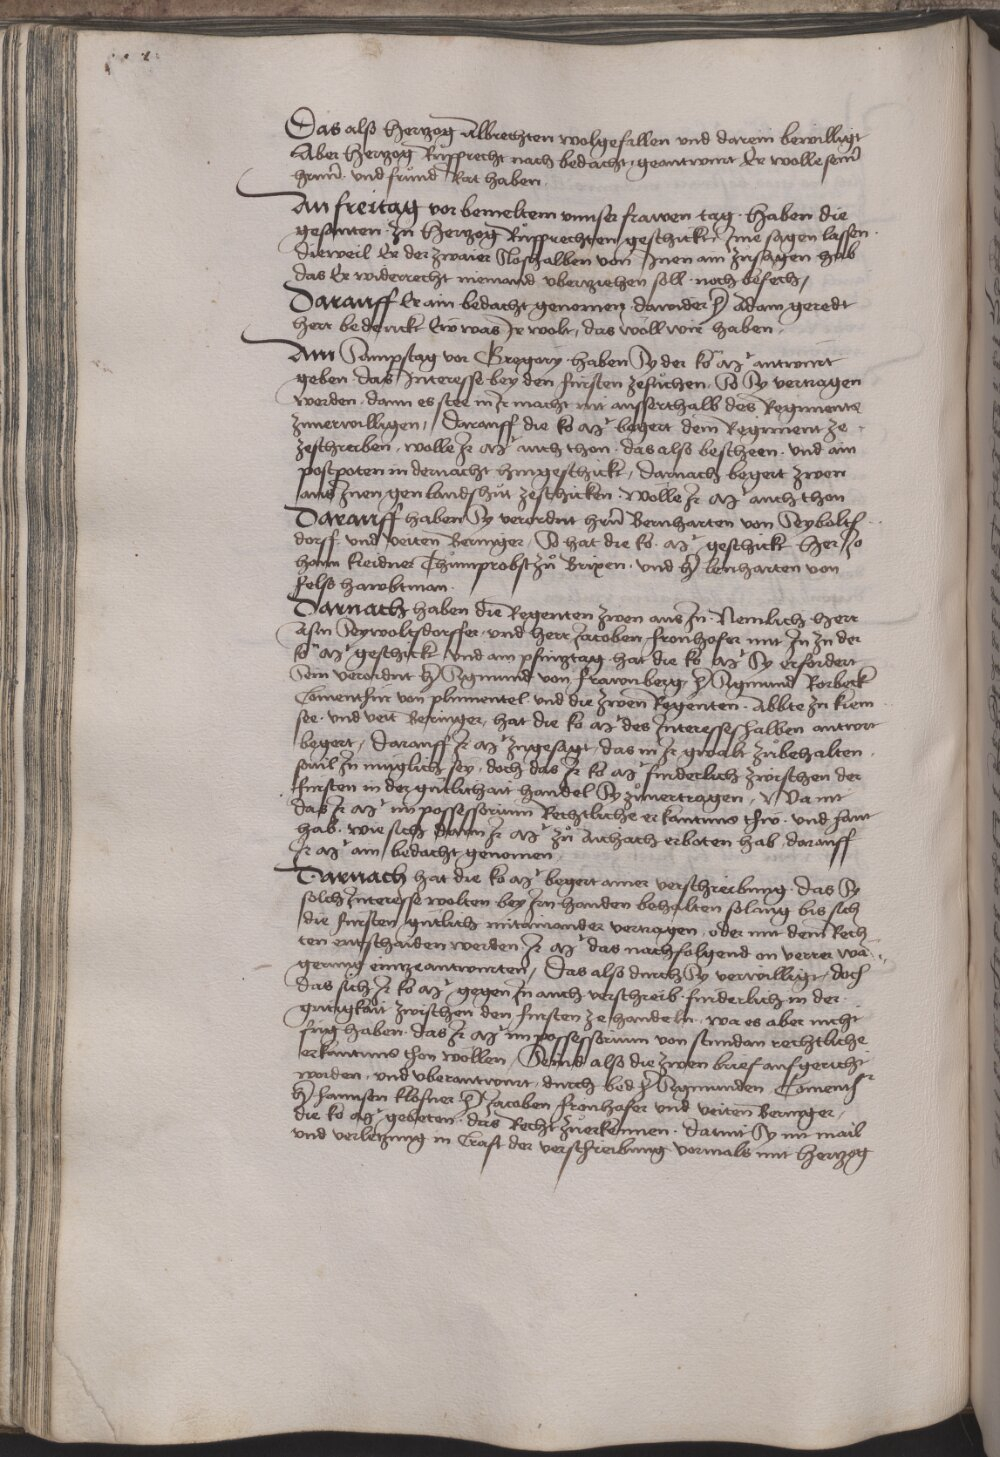 Das alß Hertzog Albrechten wolgefallen und darein bewilligt
Aber Hertzog Rupprecht nach bedacht, geantwurt Er wolle sein
hrrn̄ · und frund Rat haben ·
An freitag vor bemeltem unnser frawen tag · Haben die
gesanten · zu Hertzog Rupprechten geschickt Ime sagen lassen ·
dieweil Er der zwaier Sloshalben von Inen ain zusagen hab
das Er widerrecht niemand uberziehen soll · noch befech,
Darauff Er ain bedacht genomen, dawider H Adam geredt
Herr bedenckt Euch was Ir wolt, das wöll wir haben ·
Am Sampstag vor Gregory · haben Sy der ko Mt antwurt
geben · das Interesse bey den fursten zesuchen, So Sy vertragen
werden, dann es stee in Ir macht nit ausserthalb des Regiments
zuuerwilligen, Darauff die ko Mt begert dem Regiment ze
zeschreiben, wolle Ir Mt auch thon · das also bescheen · und ain
postpoten in der nacht hingeschickt, darnach begert zwen
aus Inen gen landshut zeschicken · Wölle Ir Mt auch thon
Darauff haben Sy verordnt hrn̄ Bernharten von Seybolts
dorff · und veiten Beringer, So hat die ko · Mt geschickt Her Jo
hann kleidner Thumprobst zu Brixen · und H lenharten von
Fels hawbtman ·
Darnach haben die Regenten zwen aus In · Nemlich Herr
Asm Seywoltsdorffer · und Herr Jacoben Fronhofer mit In zu der
ko Mt geschickt und am pfingtag hat die ko Mt Sy erfordert
Sein verordnt H Sigmund von frawnberg H Sigmund Rorbeck
Comenthur von plumental · und die zwen Regenten · Abbte zu kiem
see · und veit Beringer, hat die ko Mt des Interesseshalben antwort
begert, Darauff Ir Mt zugesagt, das in Ir gwalt zubehalten ·
souil In muglich sey, doch das Ir ko Mt furderlich zwischen der
fursten in der gutlichait handel Sy zuuertragen, Wa nit
das Ir Mt im possessorium Rechtliche erkantnus thw · und ... 
hab · wie sich dann Ir Mt zu Aichach erboten hab · darauff
Ir Mt ain bedacht genomen ·
Darnach hat die ko Mt begert ainer verschreibung · das Sy
solch Interesse wolten bey Irn handen behalten solang bis sich
die fursten gutlich mitainander vertragen, oder mit dem Rech
ten entschaiden werden · Ir Mt das nachfolgend on verrer wai
gerung einzeantwurten, Das also durch Sy verwilligt, doch
das sich Ir ko Mt gegen In auch verschreib · furderlich in der
gutigkait zwischen den fursten ze handeln, wa es aber nicht
fug haben · das Ir Mt im possessorium von stundan rechtliche
erkantnus thon wöllen, Seind also die zwen brief aufgericht
worden, und uberantwurt, durch bed H Sigmunden Comenthr
H hannsen klosner H Jacoben fronhofer und veiten Beringer,
die ko Mt gebeten · das Recht zuerkennen · damit Sy nit mail
und verletzung in Craft der verschreibung vormals mit Hertzog